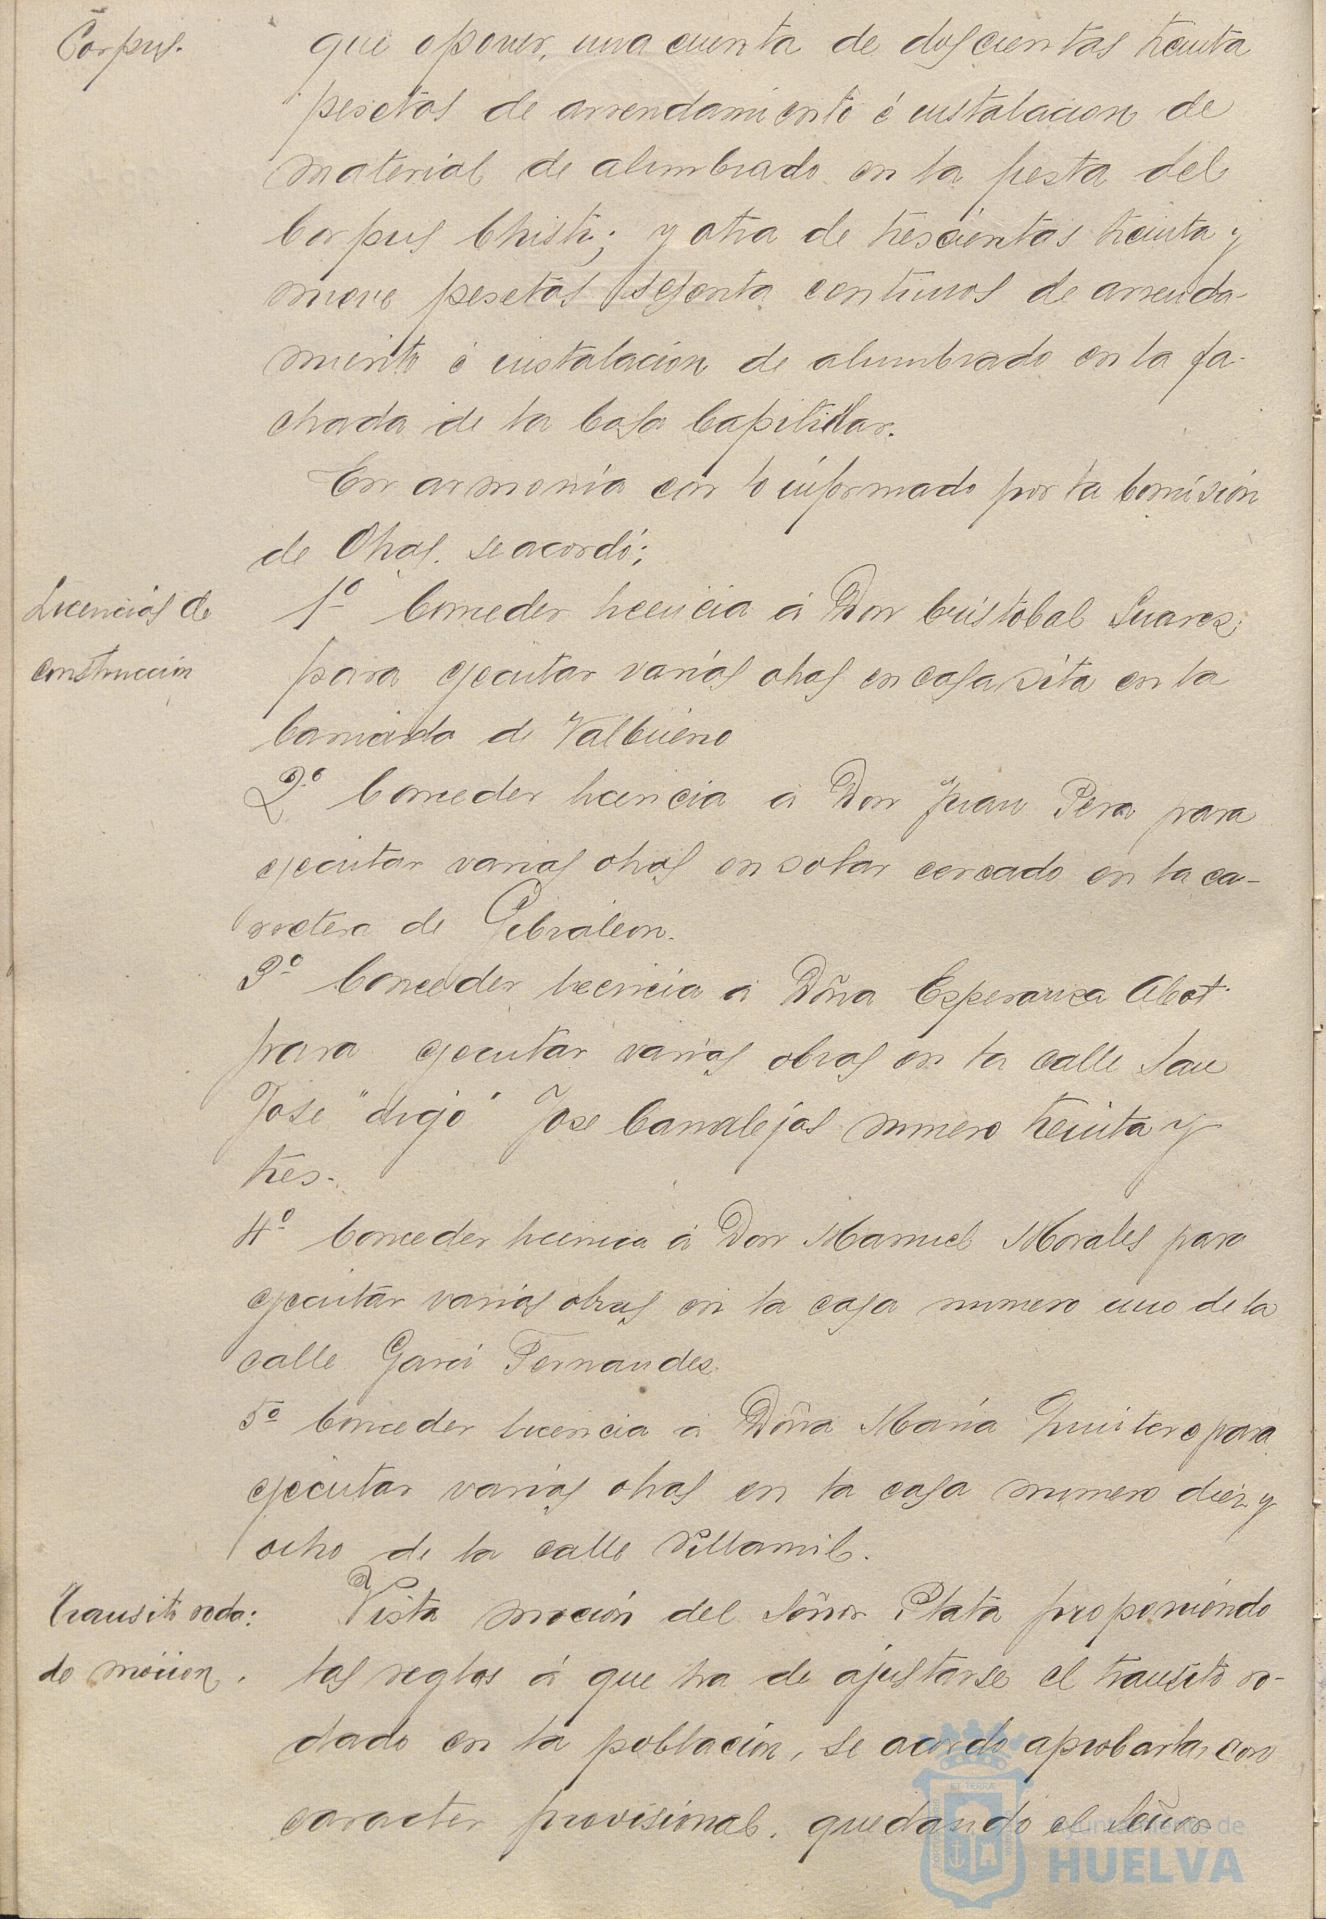 Corpus.
que oponer, una cuenta de doscientas treinta
pesetas de arrendamiento é instalacion de
material de alumbrado en la fiesta del
Corpus Christi; y otra de trescientas treinta y
nueve pesetas sesenta centimos de arrenda-
miento é instalacion de alumbrado en la fa-
chada de la Casa Capitular.
En armonía con lo informado por la Comisión
de Obras. se acordó;
Licencias de
construccion
1º Conceder licencia á Don Cristobal Suarez;
para ejecutar varias obras en casa sita en la
barriada de Valbueno
2º Conceder licencia á Don Juan Pera para
ejecutar varias obras en solar cercado en la ca-
rretera de Gibraleon.
3º Conceder licencia á Doña Esperanza Abot
para ejecutar varias obras en la calle San
Jose "digo" Jose Canalejas numero treinta y
tres.
4º Conceder licencia á Don Manuel Morales para
ejecutar varias obras en la casa numero uno de la
calle Garci Fernandez.
5º Conceder licencia á Doña María Quintero para
ejecutar varias obras en la casa numero diez y
ocho de la calle Villamil.
Transito roda:
do mocion.
Vista moción del Señor Plata proponiendo
las reglas á que ha de ajustarse el transito ro-
dado en la población, se acordo aprobarlas con
caracter provisional. quedando el Señor
ET TERRÆ
Ayuntamiento de
HUELVA